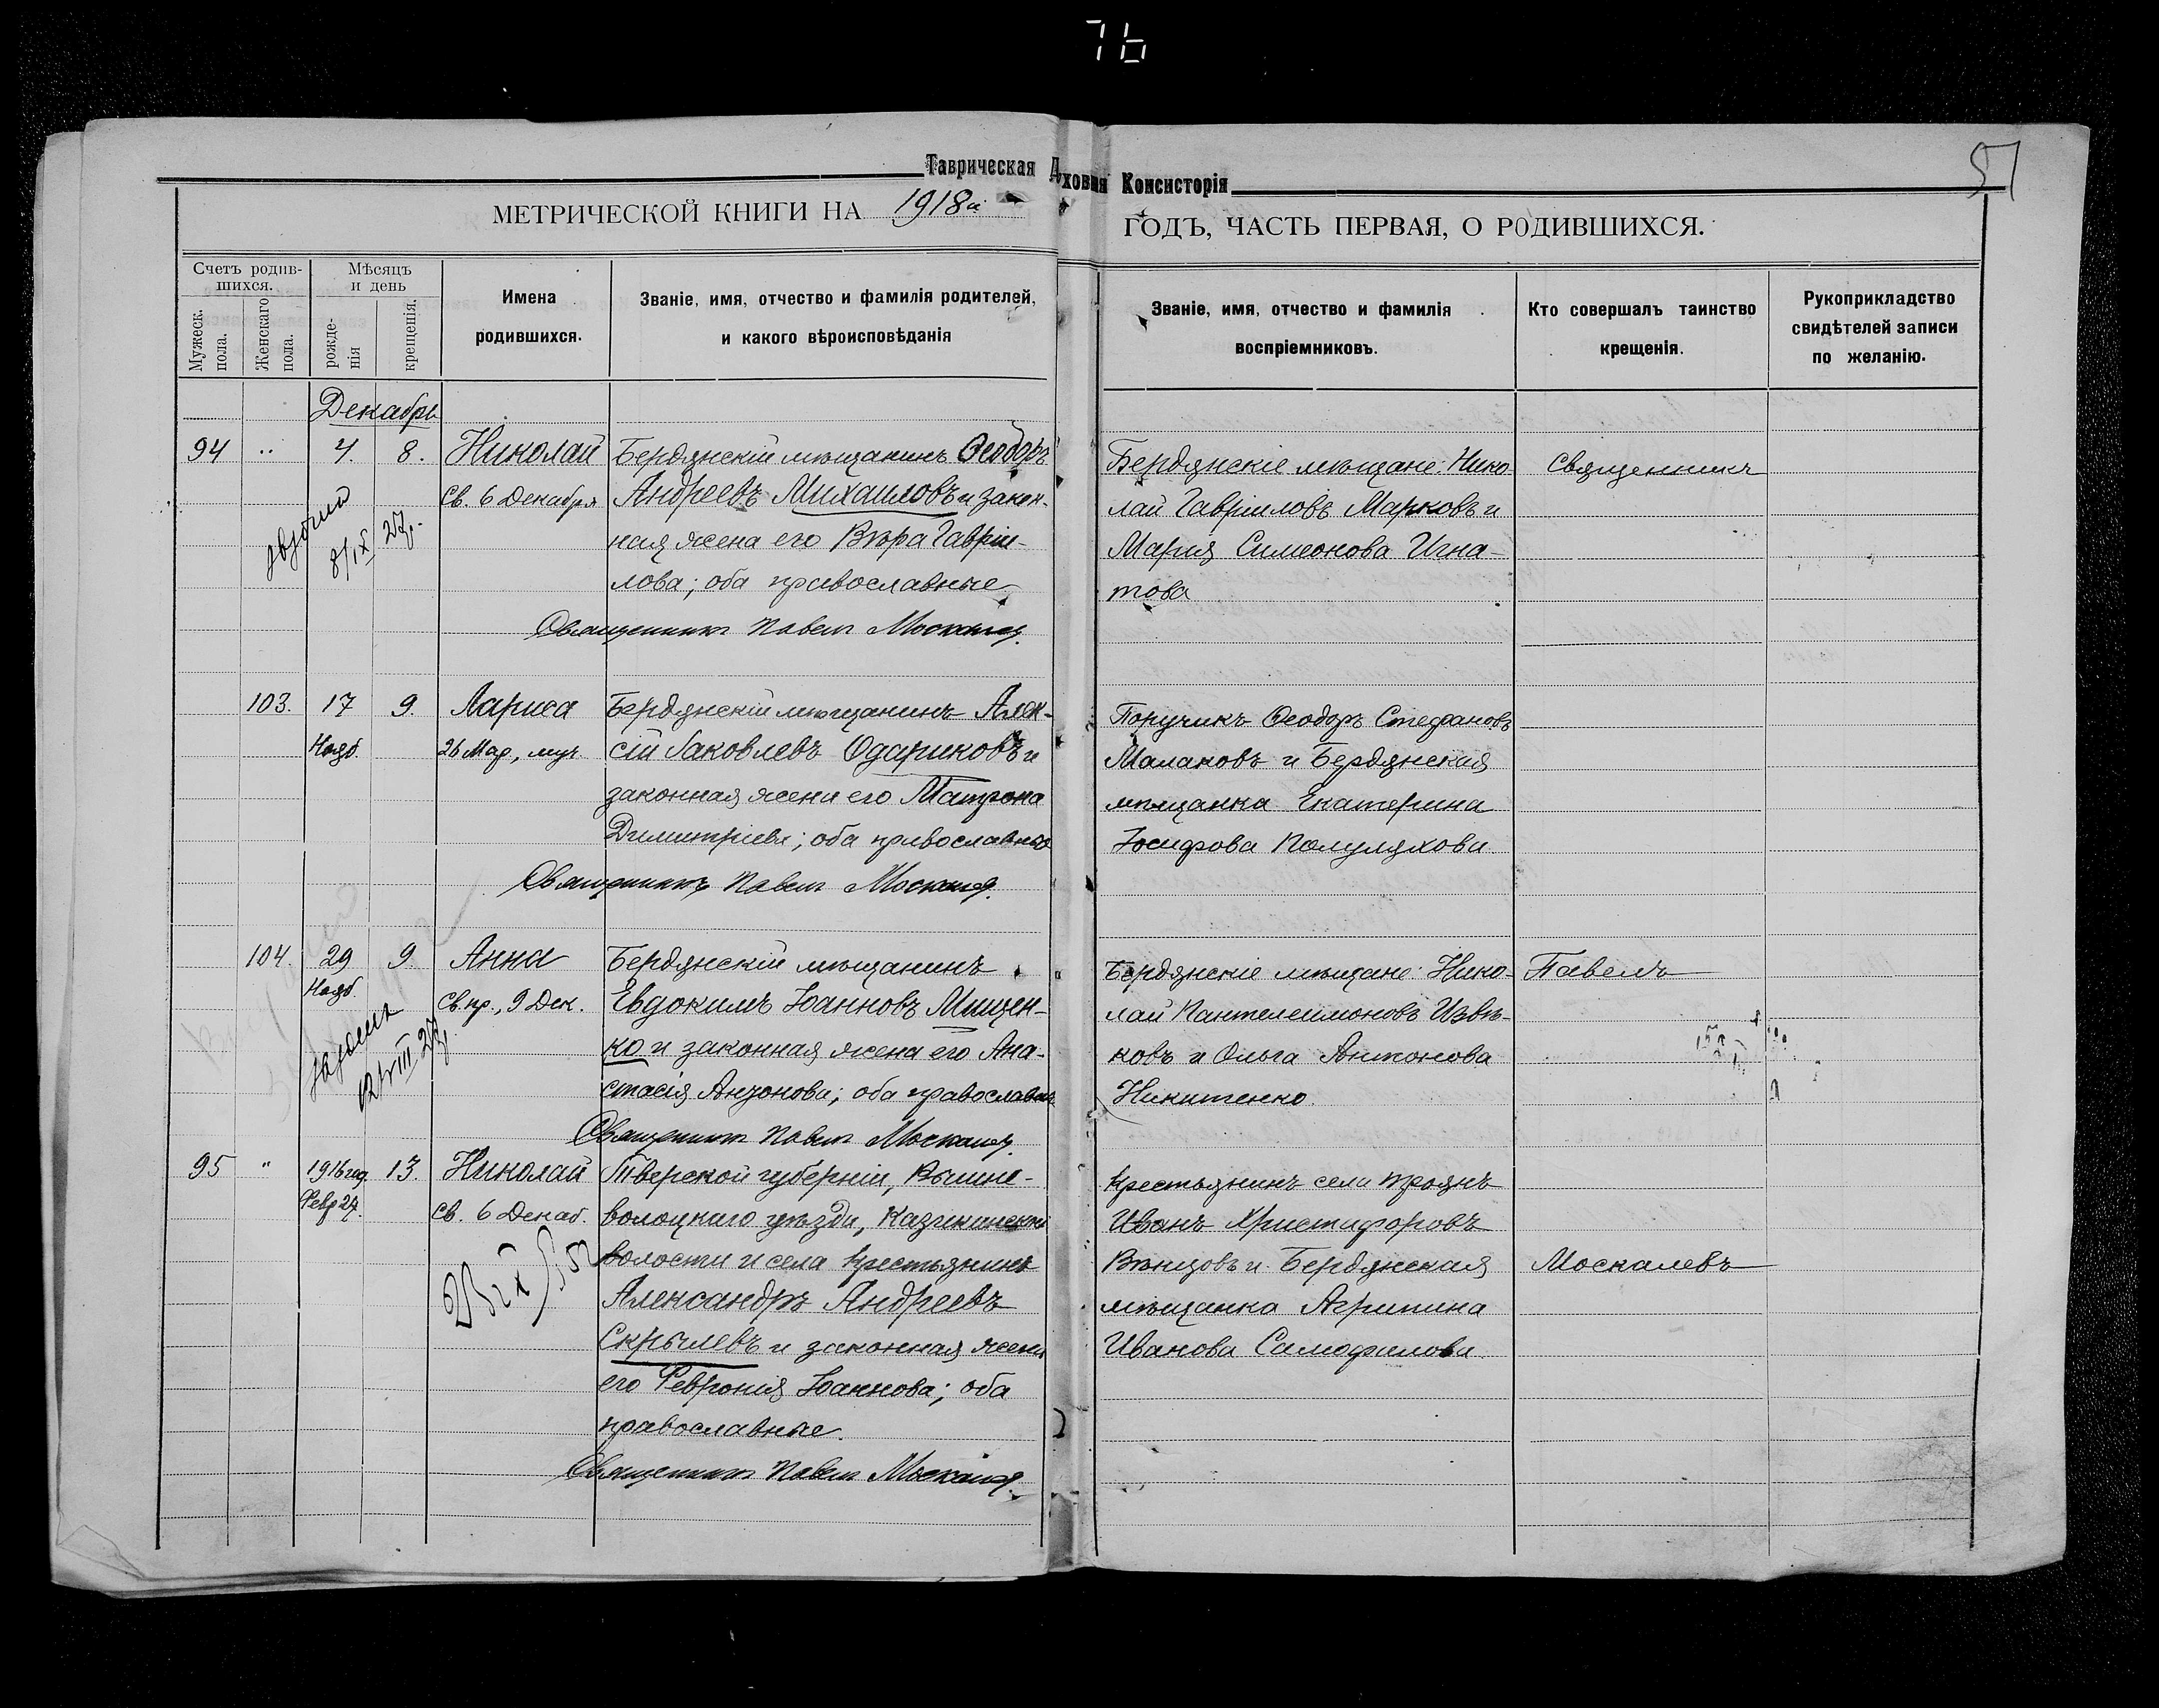 76
51
Таврическая Духовная Консисторія
МЕТРИЧЕСКОЙ КНИГИ НА 1918й
ГОДЪ, ЧАСТЬ ПЕРВАЯ, О РОДИВШИХСЯ.
Счетъ родив-
шихся.
Мужеск.
пола.
Женскаго
пола.
Мѣсяцъ
и день
рожде-
нія
крещенія.
Имена
родившихся.
Званіе, имя, отчество и фамилія родителей,
и какого вѣроисповѣданія
Званіе, имя, отчество и фамилія
воспріемниковъ.
Кто совершалъ таинство
крещенія.
Рукоприкладство
свидѣтелей записи
по желанію.
Декабрь
94 " 4. 8. Николай Бердянскій мѣщанинъ Ѳеодоръ
св. 6 Декабря Андреевъ Михаиловъ и закон-
ная жена его Вѣра Гавріи-
лова; оба православные
Священникъ Павелъ Москалев.
Бердянскіе мѣщане: Нико-
лай Гавріиловъ Марковъ и
Марія Симеонова Игна-
това
Священникъ
103. 17 9. Лариса Бердянскій мѣщанинъ Алек-
Нояб. 26 Мар., муч. сій Іаковлевъ Одариковъ и
законная жена его Матрона
Димитріева; оба православные
Священникъ Павелъ Москалев.
Поручикъ Ѳеодоръ Стефановъ
Малаковъ и Бердянская
мѣщанка Екатерина
Іосифова Полуляхова
104. 29 9 Анна Бердянскій мѣщанинъ
Нояб. св. пр., 9 Дек. Евдокимъ Іоанновъ Мищен-
ко и законная жена его Ана-
стасія Антонова; оба православн.
Священникъ Павелъ Москалев.
Бердянскіе мѣщане: Нико-
лай Пантелеимоновъ Извѣ-
ковъ и Ольга Антонова
Никитенко.
Павелъ
95 " 1916 год. 13. Николай Тверской губерніи, Вышне-
Февр 27. св. 6 Декаб. волоцкаго уѣзда,
волости и села крестьянинъ
Александръ Андреевъ
Скрылевъ и законная жена
его Февронія Іоаннова; оба
православные.
Священникъ Павелъ Москалев.
Крестьянинъ села Троянъ
Иванъ Христифоровъ
Вѣнцовъ и Бердянская
мѣщанка Агрипина
Иванова Самофалова.
Москалевъ